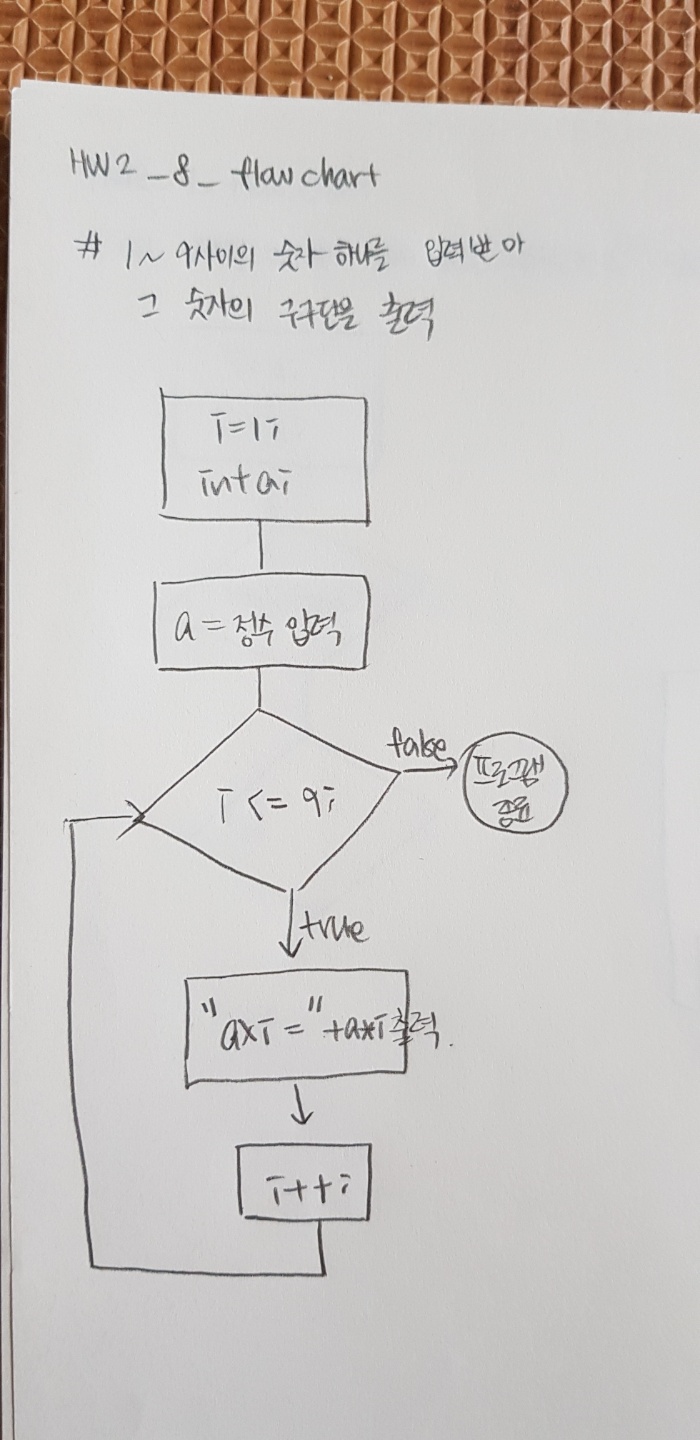 HW2_8_ flow chart
# 1~9사이의 숫자 하나를 입력받아
그 숫자의 구구단을 출력
i=1;
int a;
a = 정수 입력
i <= 9;
false
프로그램
종료
true
"axi =" +a*i 출력.
i++;